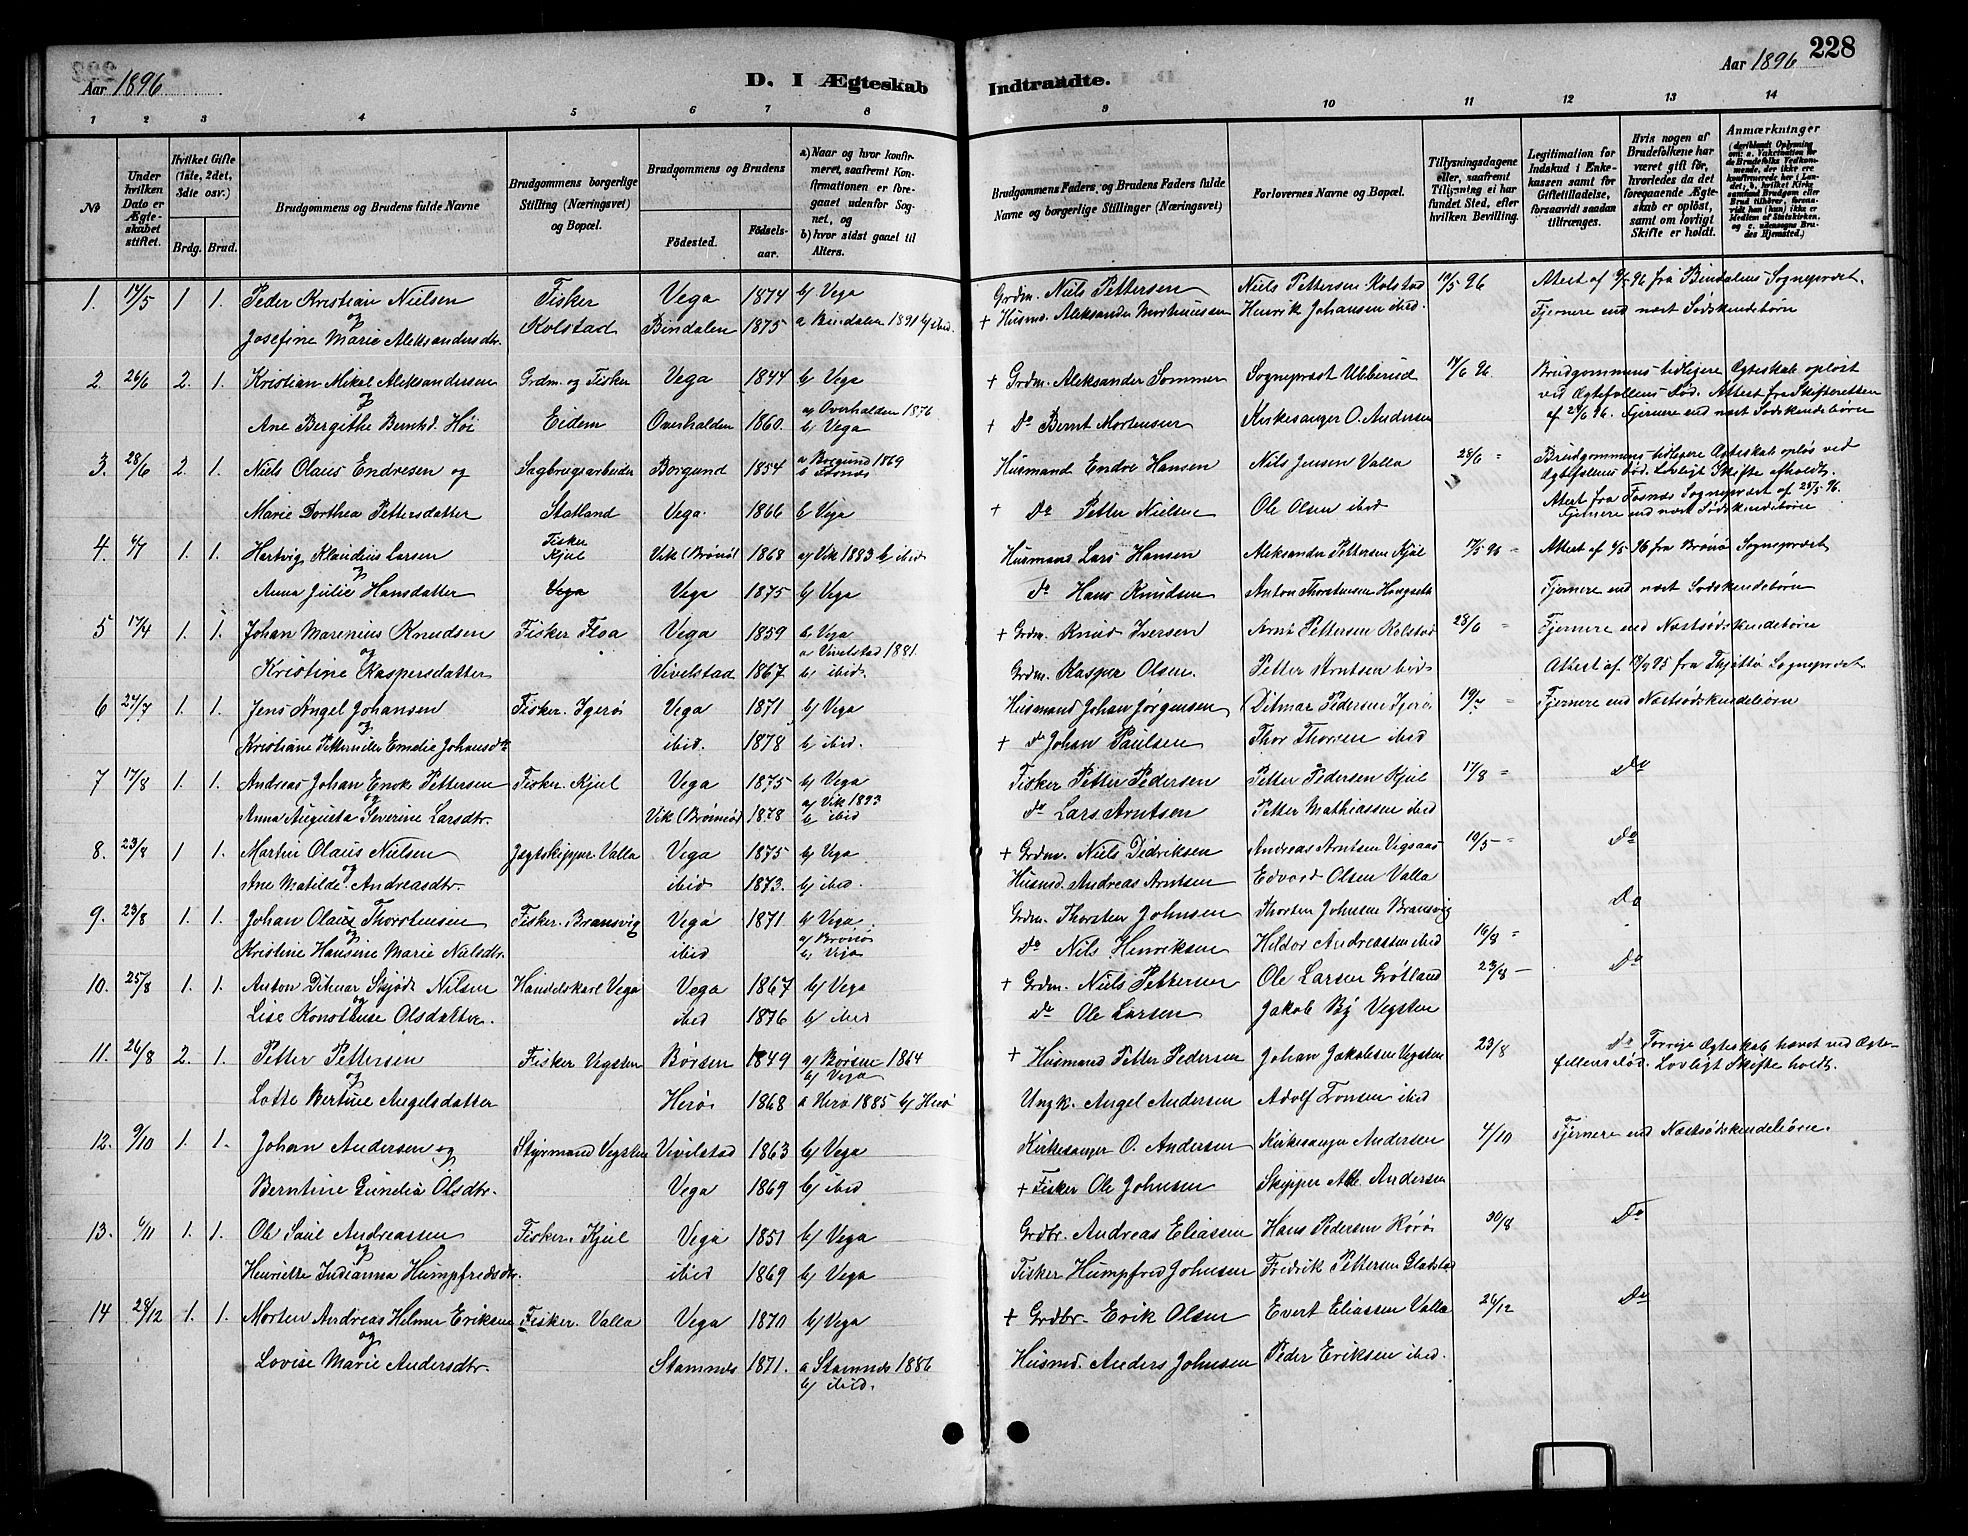 228
Aar 1896
D. I Ægteskab Indtraadte.
Aar 1896
1 2 3 4 5 6 7 8 9 10 11 12 13 14
№
Under hvilken Dato er Ægteskabet stiftet.
Hvilket Gifte (1ste, 2det, 3die osv.)
Brdg. Brud.
Brudgommens og Brudens fulde Navne
Brudgommens borgerlige Stilling (Næringsvei) og Bopæl.
Brudgommens og Brudens
Fødested.
Fødselsaar.
a) Naar og hvor konfirmeret, saafremt Konfirmationen er foregaaet udenfor Sognet, og
b) hvor sidst gaaet til Alters.
Brudgommens Faders, og Brudens Faders fulde Navne og borgerlige Stillinger (Næringsvei)
Forlovernes Navne og Bopæl.
Tillysningsdagene eller, saafremt Tillysning ei har fundet Sted, efter hvilken Bevilling.
Legitimation for Indskud i Enkekassen samt for Giftetilladelse, forsaavidt saadan tiltrænges.
Hvis nogen af Brudefolkene har været gift før, hvorledes da det foregaaende Ægteskab er opløst, samt om lovligt Skifte er holdt.
Anmærkninger
(deriblandt Oplysning om: a. Vakcination for de Brudefolks Vedkommende, der ikke ere konfirmerede her i Landet; b. hvilket Kirkesamfund Brudgom eller Brud tilhører, forsaavidt han (hun) ikke er Medlem af Statskirken, og c. udensogns Brudes Hjemsted.)
1. 17/5 1 1. Peder Kristian Nielsen Fisker Vega 1874 b/ Vega Grdm. Niels Pettersen Niels Pettersen Kolstad 10/5 96 Attest af 9/5 96 fra Bindalens Sognepræst.
og
Josefine Marie Aleksandersdtr. Kolstad Bindalen 1875 a Bindalen 1891 b/ ibid. + Husmd. Aleksander Morthuussen Henrik Johansen ibid. Fjernere end næst Sødskendebørn
2. 26/6 2. 1. Kristian Mikal Aleksandersen Grdm. og Fisker Vega 1844 b/ Vega + Grdm. Aleksander Sommer Sognepræst Ubberud 14/6 96. Brudgommens tidligere Ægteskab opløst
og ved Ægtefællens Død. Attest fra Skifteretten
Ane Bergithe Berntsd. Høi Eidem Overhalden 1860. a/ Overhalden 1876 b/ Vega + Do Bernt Mortensen Kirkesanger O. Andersen af 24/6 96. Fjernere end næst Sødskendebørn
3. 28/6 2. 1. Niels Olaus Endresen og Sagbrugsarbeider Borgund 1854 a Borgund 1869 b Fosnæs Husmand Endre Hansen Nils Jensen Valla 28/6 = Brudgommens tidligere Ægteskab opløs ved
Ægtefællens Død. Lovligt Skifte afholdt.
Marie Dorthea Pettersdatter Statland Vega. 1866 b Vega + Do Petter Nielsen Ole Olsen ibid Attest fra Fosnæs Sognepræst af 25/5 96.
Fjernere end næst Sødskendebørn
4. 6/7 1. 1. Hartvig Klaudius Larsen Fisker Kjul Vik (Brønø) 1868 a/ Vik 1883 b/ ibid Husmand Lars Hansen Aleksander Pettersen Kjul 17/5 96 = Attest af 4/5 96 fra Brønø Sognepræst
og
Anna Julie Hansdatter Vega Vega 1875 b/ Vega do Hans Knudsen Anton Thorstensen Hongseth Fjernere end næst Sødskendebørn
5 17/4 1. 1. Johan Marenius Knudsen Fisker Floa Vega 1859 b/ Vega + Grdm. Knud Iversen Arnt Pettersen Kolstad 28/6 = Fjernere end Næstsødskendebørn
og
Kristine Kaspersdatter Vivelstad 1867. a Vivelstad 1881. b/ ibid. Grdm. Kasper Olsen. Petter Arntsen ibid Attest af 18/9 95 fra Thjøttø Sognepræst
6 24/7 1. 1. Jens Angel Johansen Fisker. Igerø Vega 1871 b/ Vega Husmand Johan Jørgensen Ditmar Pedersen Igerø = Fjernere end Næstsødskendebørn
og
Kristiane Petternelle Emelie Johansdtr ibid. 1878 b/ ibid. + do Johan Paulsen Thor Thorsen ibid
7 17/8 1. 1. Andreas Johan Enok Pettersen Fisker. Kjul Vega 1875 b/ Vega Fisker Petter Pedersen Petter Pedersen Kjul 17/8 = Do
og
Anna Augusta Severine Larsdtr. Vik (Brønnø) 1878 a/ Vik 1893 b/ ibid do Lars Arntsen Petter Mathiassen ibid
8. 23/8 1 1. Martin Olaus Nielsen Jagtskipper Valla Vega 1875 b/ Vega + Grdm. Niels Didriksen Andreas Arntsen Vigsaas 19/5 = Do
og
Ane Matilde Andreasdtr. ibid 1873. b/ ibid. Husmd. Andreas Arntsen Edvard Olsen Valla
9. 23/8 1. 1. Johan Olaus Thorstensen Fisker. Bransvig Vega 1871 b/ Vega Grdm. Thorsten Johnsen Thorsten Johnsen Bransvig Do
og
Kristine Hansine Marie Nielsdtr. ibid a/ Brønø b/ Vega do Nils Henriksen Heldor Andreassen ibid 16/8 =
10. 25/8 1. 1. Anton Ditmar Skjødt Nilsen Handelskarl Vega Vega 1867 b/ Vega + Grdm. Niels Pettersen Ole Larsen Grøtland 23/8 – Do
og
Lise Konothuse Olsdatter. ibid 1876 b/ ibid do Ole Larsen Jakob By Vegsten
11. 26/8 2. 1. Petter Pettersen Fisker Vegsten Børsen 1849 a/ Børsen 1864 b/ Vega + Husmand Petter Pedersen Johan Jakobsen Vegsten 23/8 do Forrige Ægteskab hævet ved Ægte-
og fellens død. Lovligt Skifte holdt.
Lotte Bertine Angelsdatter Herø 1868 a Herø 1885 b/ Herø Ungk. Angel Andersen Adolf Tonsen ibid
12. 9/10 1. 1. Johan Andersen og Styrmand Vegsten Vivilstad 1863 b/ Vega Kirkesanger O. Andersen Kirkesanger Andersen 4/10 Fjernere end Næstsødskendebørn.
Berntine Gunelia Olsdtr. Vega 1869 b/ ibid + Fisker Ole Johnsen Skipper Andersen
13. 6/11 1. 1. Ole Paul Andreassen Fisker. Kjul Vega 1851 b/ Vega Grdbr. Andreas Eliassen Hans Pedersen Rørø 30/8 Do
og
Henriette Indianna Humpfredsdtr. ibid 1869 b/ Vega Fisker Humpfred Johnsen Fredrik Pettersen Gladstad
14 28/12 1. 1. Morten Andreas Helmer Eriksen Fisker. Valla Vega 1870 b/ Vega + Grdbr. Erik Olsen Evert Eliassen Valla 26/12 Do
og
Lovise Marie Andersdtr. Stamnes 1871. a Stamnes 1886 b/ ibid. Husmd. Anders Johnsen Peder Eriksen ibid.